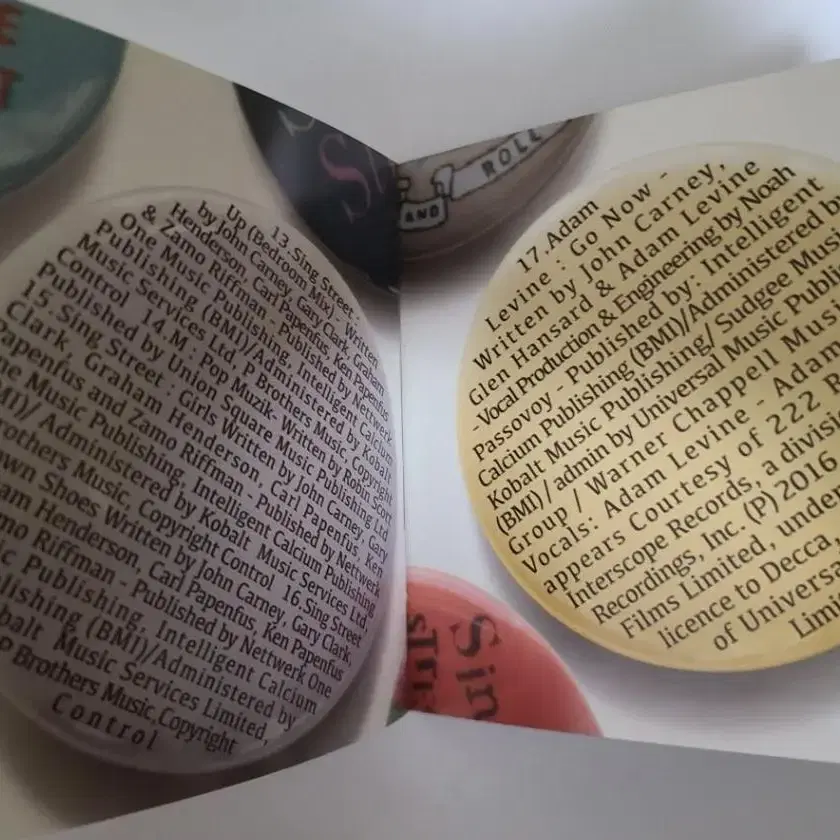 E
T
S
SI
AND
ROLL
13.Sing Street -
Up (Bedroom Mix) - Written
by John Carney, Gary Clark, Graham
Henderson, Carl Papenfus, Ken Papenfus
& Zamo Riffman - Published by Nettwerk
One Music Publishing, Intelligent Calcium
Publishing (BMI)/Administered by Kobalt
Music Services Ltd, P Brothers Music, Copyright
Control 14.M : Pop Muzik- Written by Robin Scott
Published by Union Square Music Publishing Ltd
15.Sing Street : Girls Written by John Carney, Gary
Clark, Graham Henderson, Carl Papenfus, Ken
Papenfus and Zamo Riffman - Published by Nettwerk
ne Music Publishing, Intelligent Calcium Publishing
MI)/ Administered by Kobalt Music Services Ltd,
rothers Music, Copyright Control 16.Sing Street
own Shoes Written by John Carney, Gary Clark,
am Henderson, Carl Papenfus, Ken Papenfus
mo Riffman - Published by Nettwerk One
c Publishing, Intelligent Calcium
lishing (BMI)/Administered by
balt Music Services Limited,
P Brothers Music,Copyright
Control
17.Adam
Levine : Go Now -
Written by John Carney,
Glen Hansard & Adam Levine
-Vocal Production & Engineering by Noah
Passovoy - Published by: Intelligent
Calcium Publishing (BMI)/Administered by
Kobalt Music Publishing/ Sudgee Mus
(BMI)/ admin by Universal Music Publi
Group / Warner Chappell Mus
Vocals: Adam Levine - Adam
appears Courtesy of 222 R
Interscope Records, a divisi
Recordings, Inc. (P)2016
Films Limited, unde
licence to Decca,
of Universa
Limi
Sin
sTr